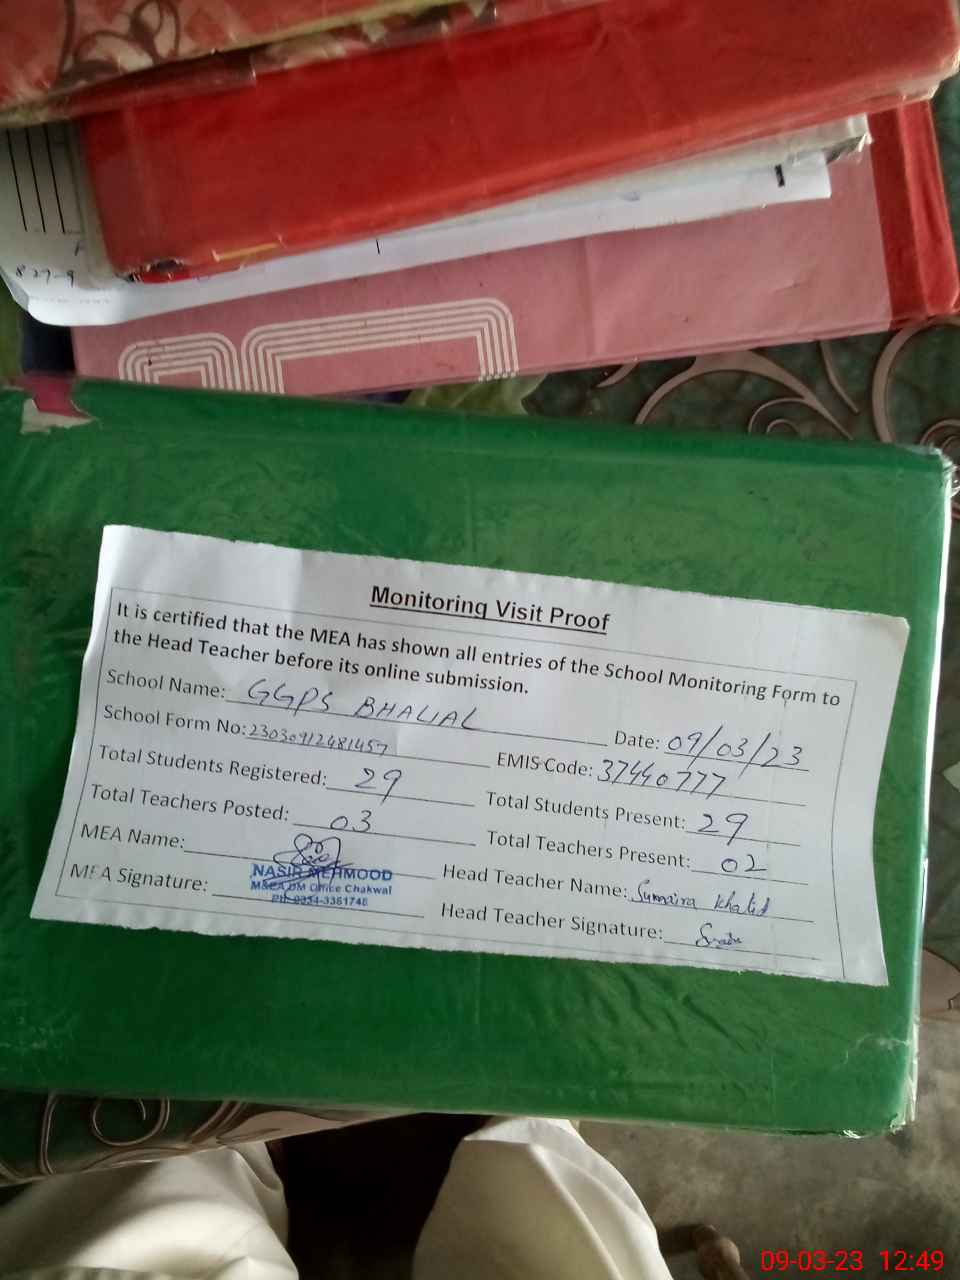 827-9
Monitoring Visit Proof
It is certified that the MEA has shown all entries of the School Monitoring Form to
the Head Teacher before its online submission.
School Name: GGPS BHALIAL Date: 09/03/23
School Form No: 23030912481457 EMIS Code: 37440777
Total Students Registered: 29 Total Students Present: 29
Total Teachers Posted: 03 Total Teachers Present: 02
MEA Name: Head Teacher Name: Sumaira Khalid
NASIR MEHMOOD
MEA Signature: Head Teacher Signature:
M&EA DM Office Chakwal
Ph: 0334-3361746
09-03-23 12:49